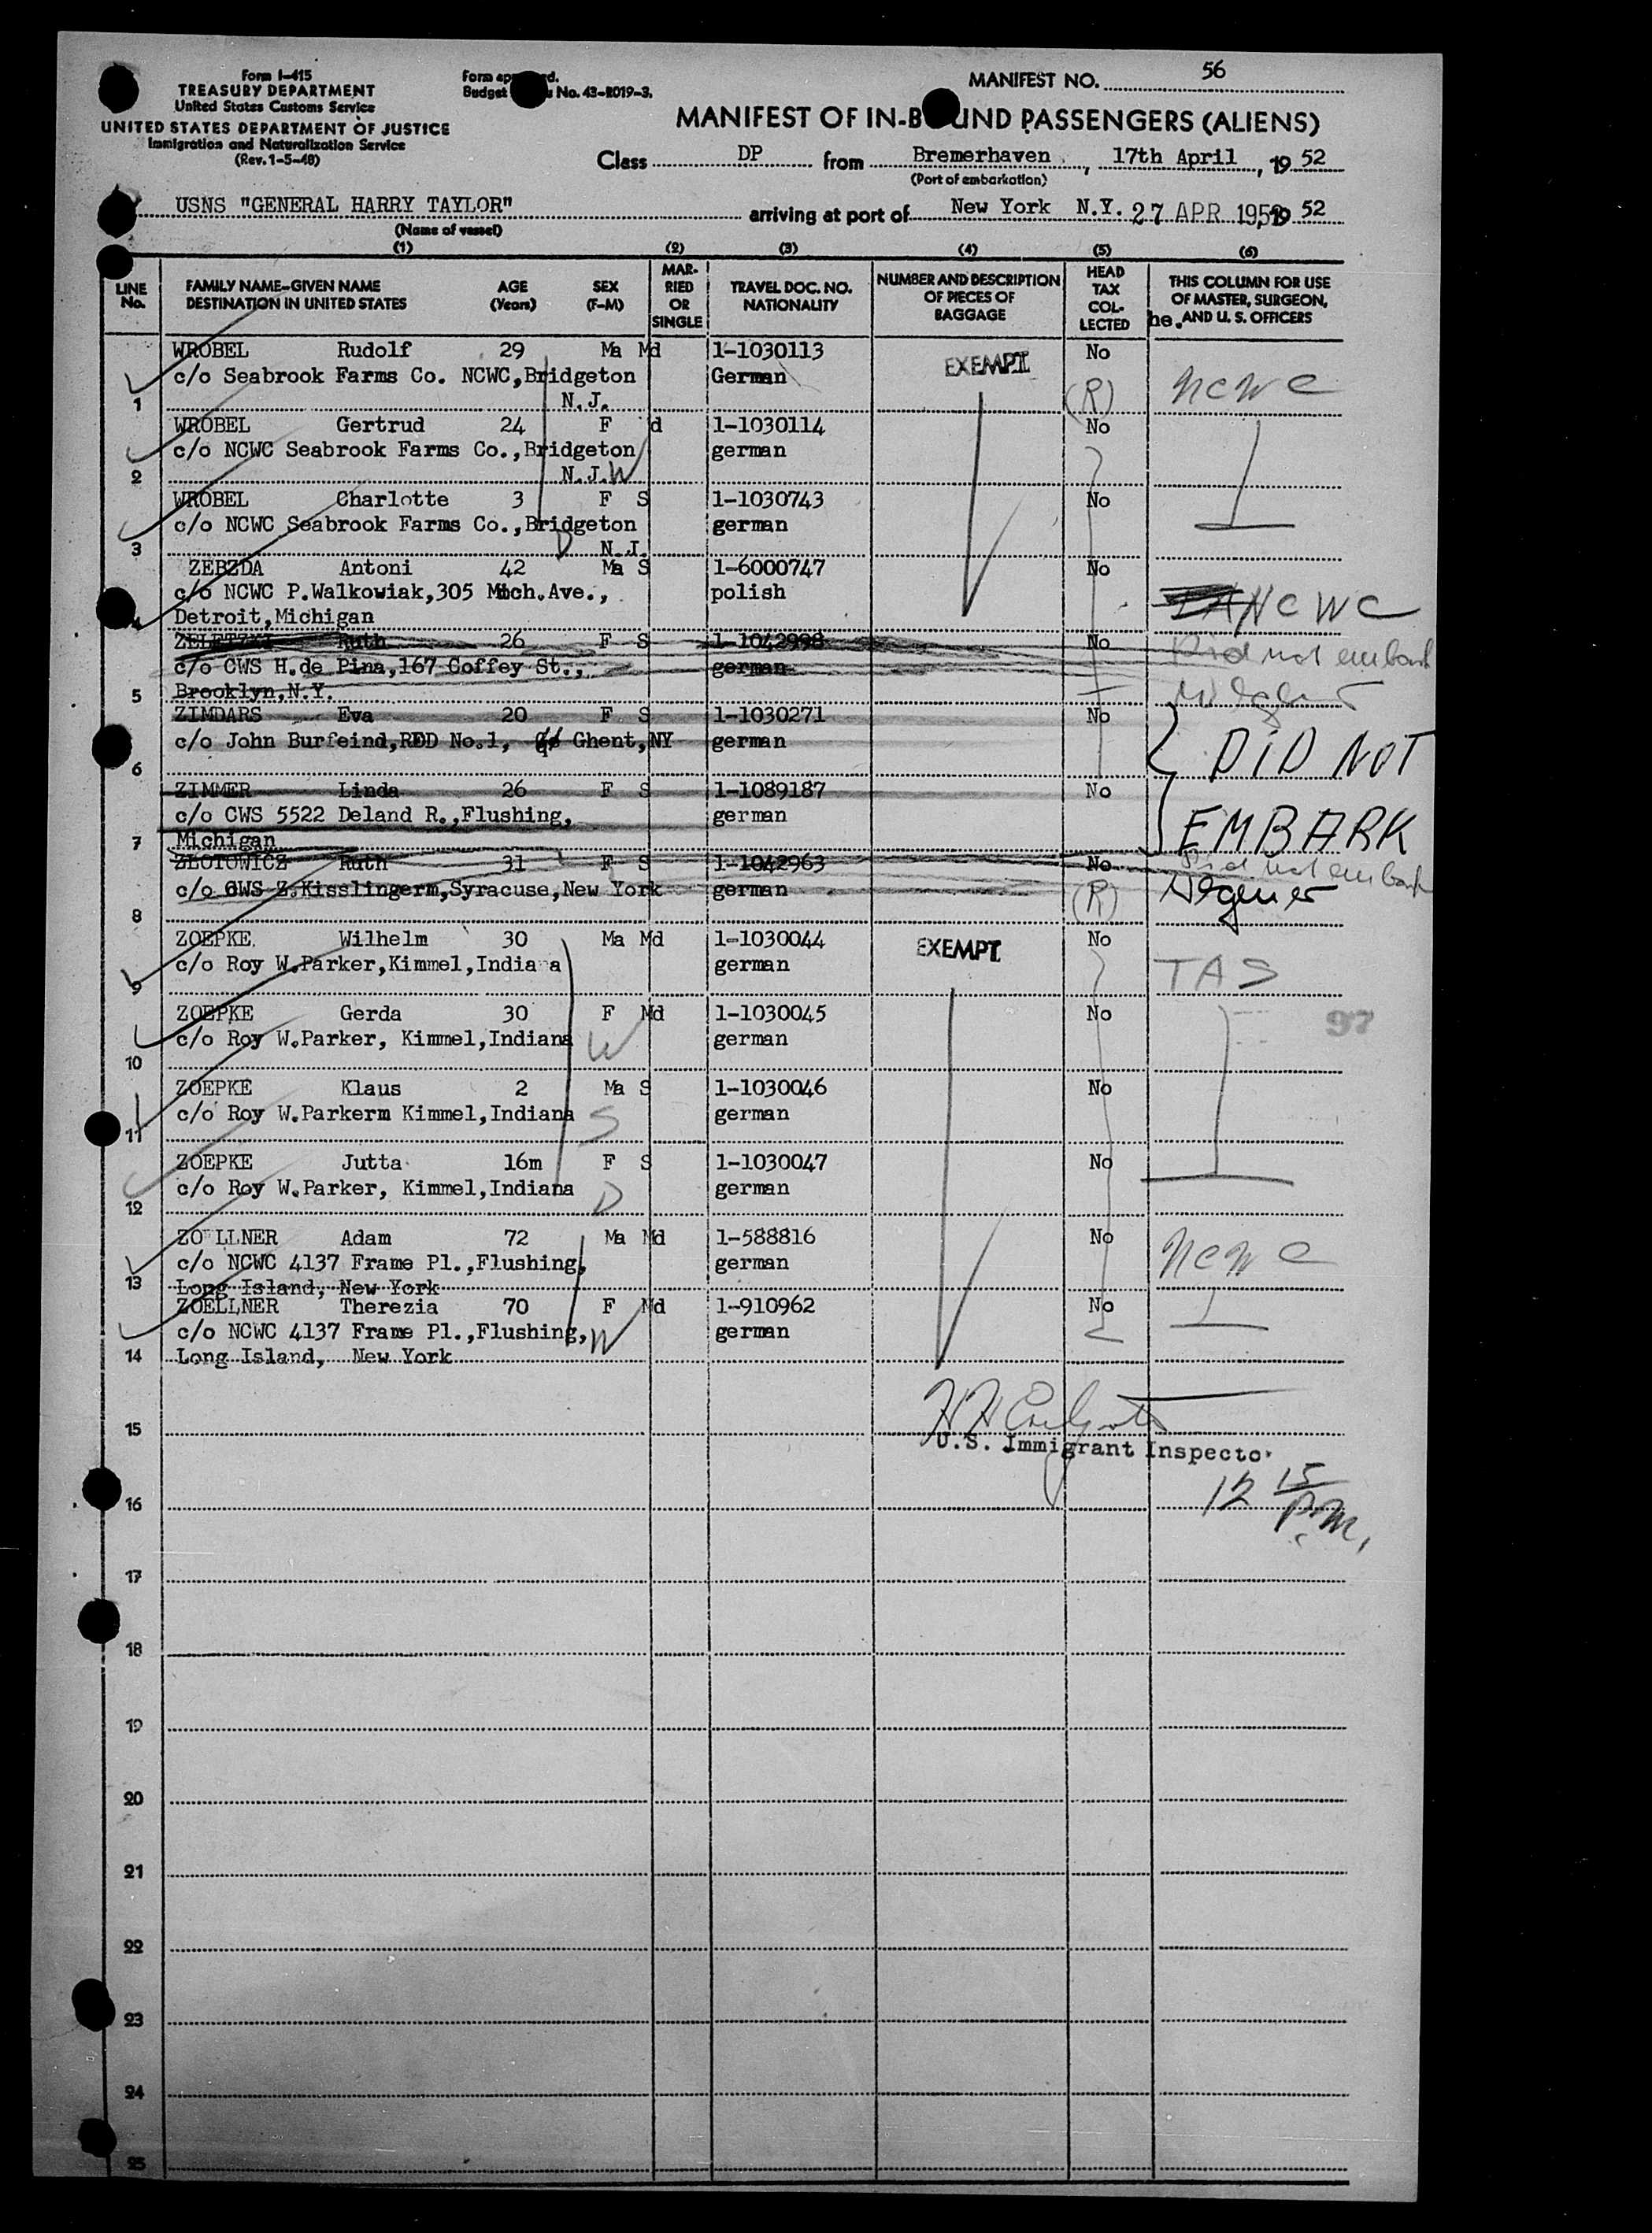 Form I-415
TREASURY DEPARTMENT
United States Customs Service
UNITED STATES DEPARTMENT OF JUSTICE
Immigration and Naturalization Service
(Rev. 1-5-48)
Form
Budget No. 43-R019-3.
MANIFEST NO. 56
MANIFEST OF IN-BOUND PASSENGERS (ALIENS)
Class DP from Bremerhaven, 17th April, 19 52
(Port of embarkation)
USNS "GENERAL HARRY TAYLOR" arriving at port of New York N.Y. 27 APR 1952 19 52
(Name of vessel)
(1) (2) (3) (4) (5) (6)
LINE No.
FAMILY NAME—GIVEN NAME
DESTINATION IN UNITED STATES
AGE (Years)
SEX (F-M)
MAR-RIED OR SINGLE
TRAVEL DOC. NO. NATIONALITY
NUMBER AND DESCRIPTION OF PIECES OF BAGGAGE
HEAD TAX COL-LECTED
THIS COLUMN FOR USE OF MASTER, SURGEON, AND U. S. OFFICERS
he.
WROBEL Rudolf 29 Ma Md 1-1030113 EXEMPT No
c/o Seabrook Farms Co. NCWC,Bridgeton German (R) NCWC
1 N.J.
WROBEL Gertrud 24 F d 1-1030114 No
c/o NCWC Seabrook Farms Co.,Bridgeton german
2 N.J. W
WROBEL Charlotte 3 F S 1-1030743 No
c/o NCWC Seabrook Farms Co.,Bridgeton german
3 D N.J.
ZEBZDA Antoni 42 Ma S 1-6000747 No
c/o NCWC P.Walkowiak,305 Mich.Ave., polish NCWC
4 Detroit,Michigan
ZELETZKI Ruth 26 F S 1-1042998 No Did not embark
c/o CWS H.de Pina,167 Coffey St., german
5 Brooklyn,N.Y. Wegner
ZIMDARS Eva 20 F S 1-1030271 No
c/o John Burfeind,RDD No.1, Ghent,NY german DID NOT
6
ZIMMER Linda 26 F S 1-1089187 No
c/o CWS 5522 Deland R.,Flushing, german EMBARK
7 Michigan
ZLOTOWICZ Ruth 31 F S 1-1042963 No Did not embark
c/o CWS Z.Kisslingerm,Syracuse,New York german (R) Wegner
8
ZOEPKE Wilhelm 30 Ma Md 1-1030044 EXEMPT No
c/o Roy W.Parker,Kimmel,India a german TAS
9
ZOEPKE Gerda 30 F Md 1-1030045 No 97
c/o Roy W.Parker, Kimmel,Indiana W german
10
ZOEPKE Klaus 2 Ma S 1-1030046 No
c/o Roy W.Parkerm Kimmel,Indiana S german
11
ZOEPKE Jutta 16m F S 1-1030047 No
c/o Roy W.Parker, Kimmel,Indiana D german
12
ZO LLNER Adam 72 Ma Md 1-588816 No
c/o NCWC 4137 Frame Pl.,Flushing, german NCWC
13 Long Island, New York
ZOELLNER Therezia 70 F Md 1-910962 No
c/o NCWC 4137 Frame Pl.,Flushing, W german
14 Long Island, New York
15
U.S. Immigrant Inspector
12 15 P.M.
16
17
18
19
20
21
22
23
24
25